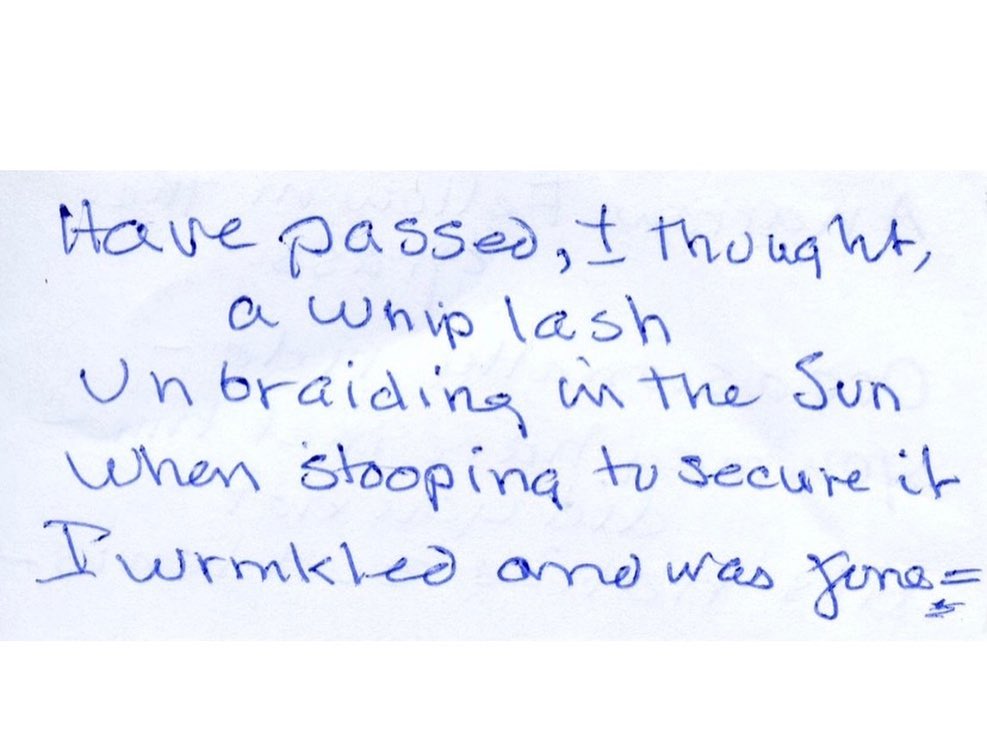 Have passed, I thought,
a Whip lash
Unbraiding in the Sun
When stooping to secure it
I wrinkled and was gone =